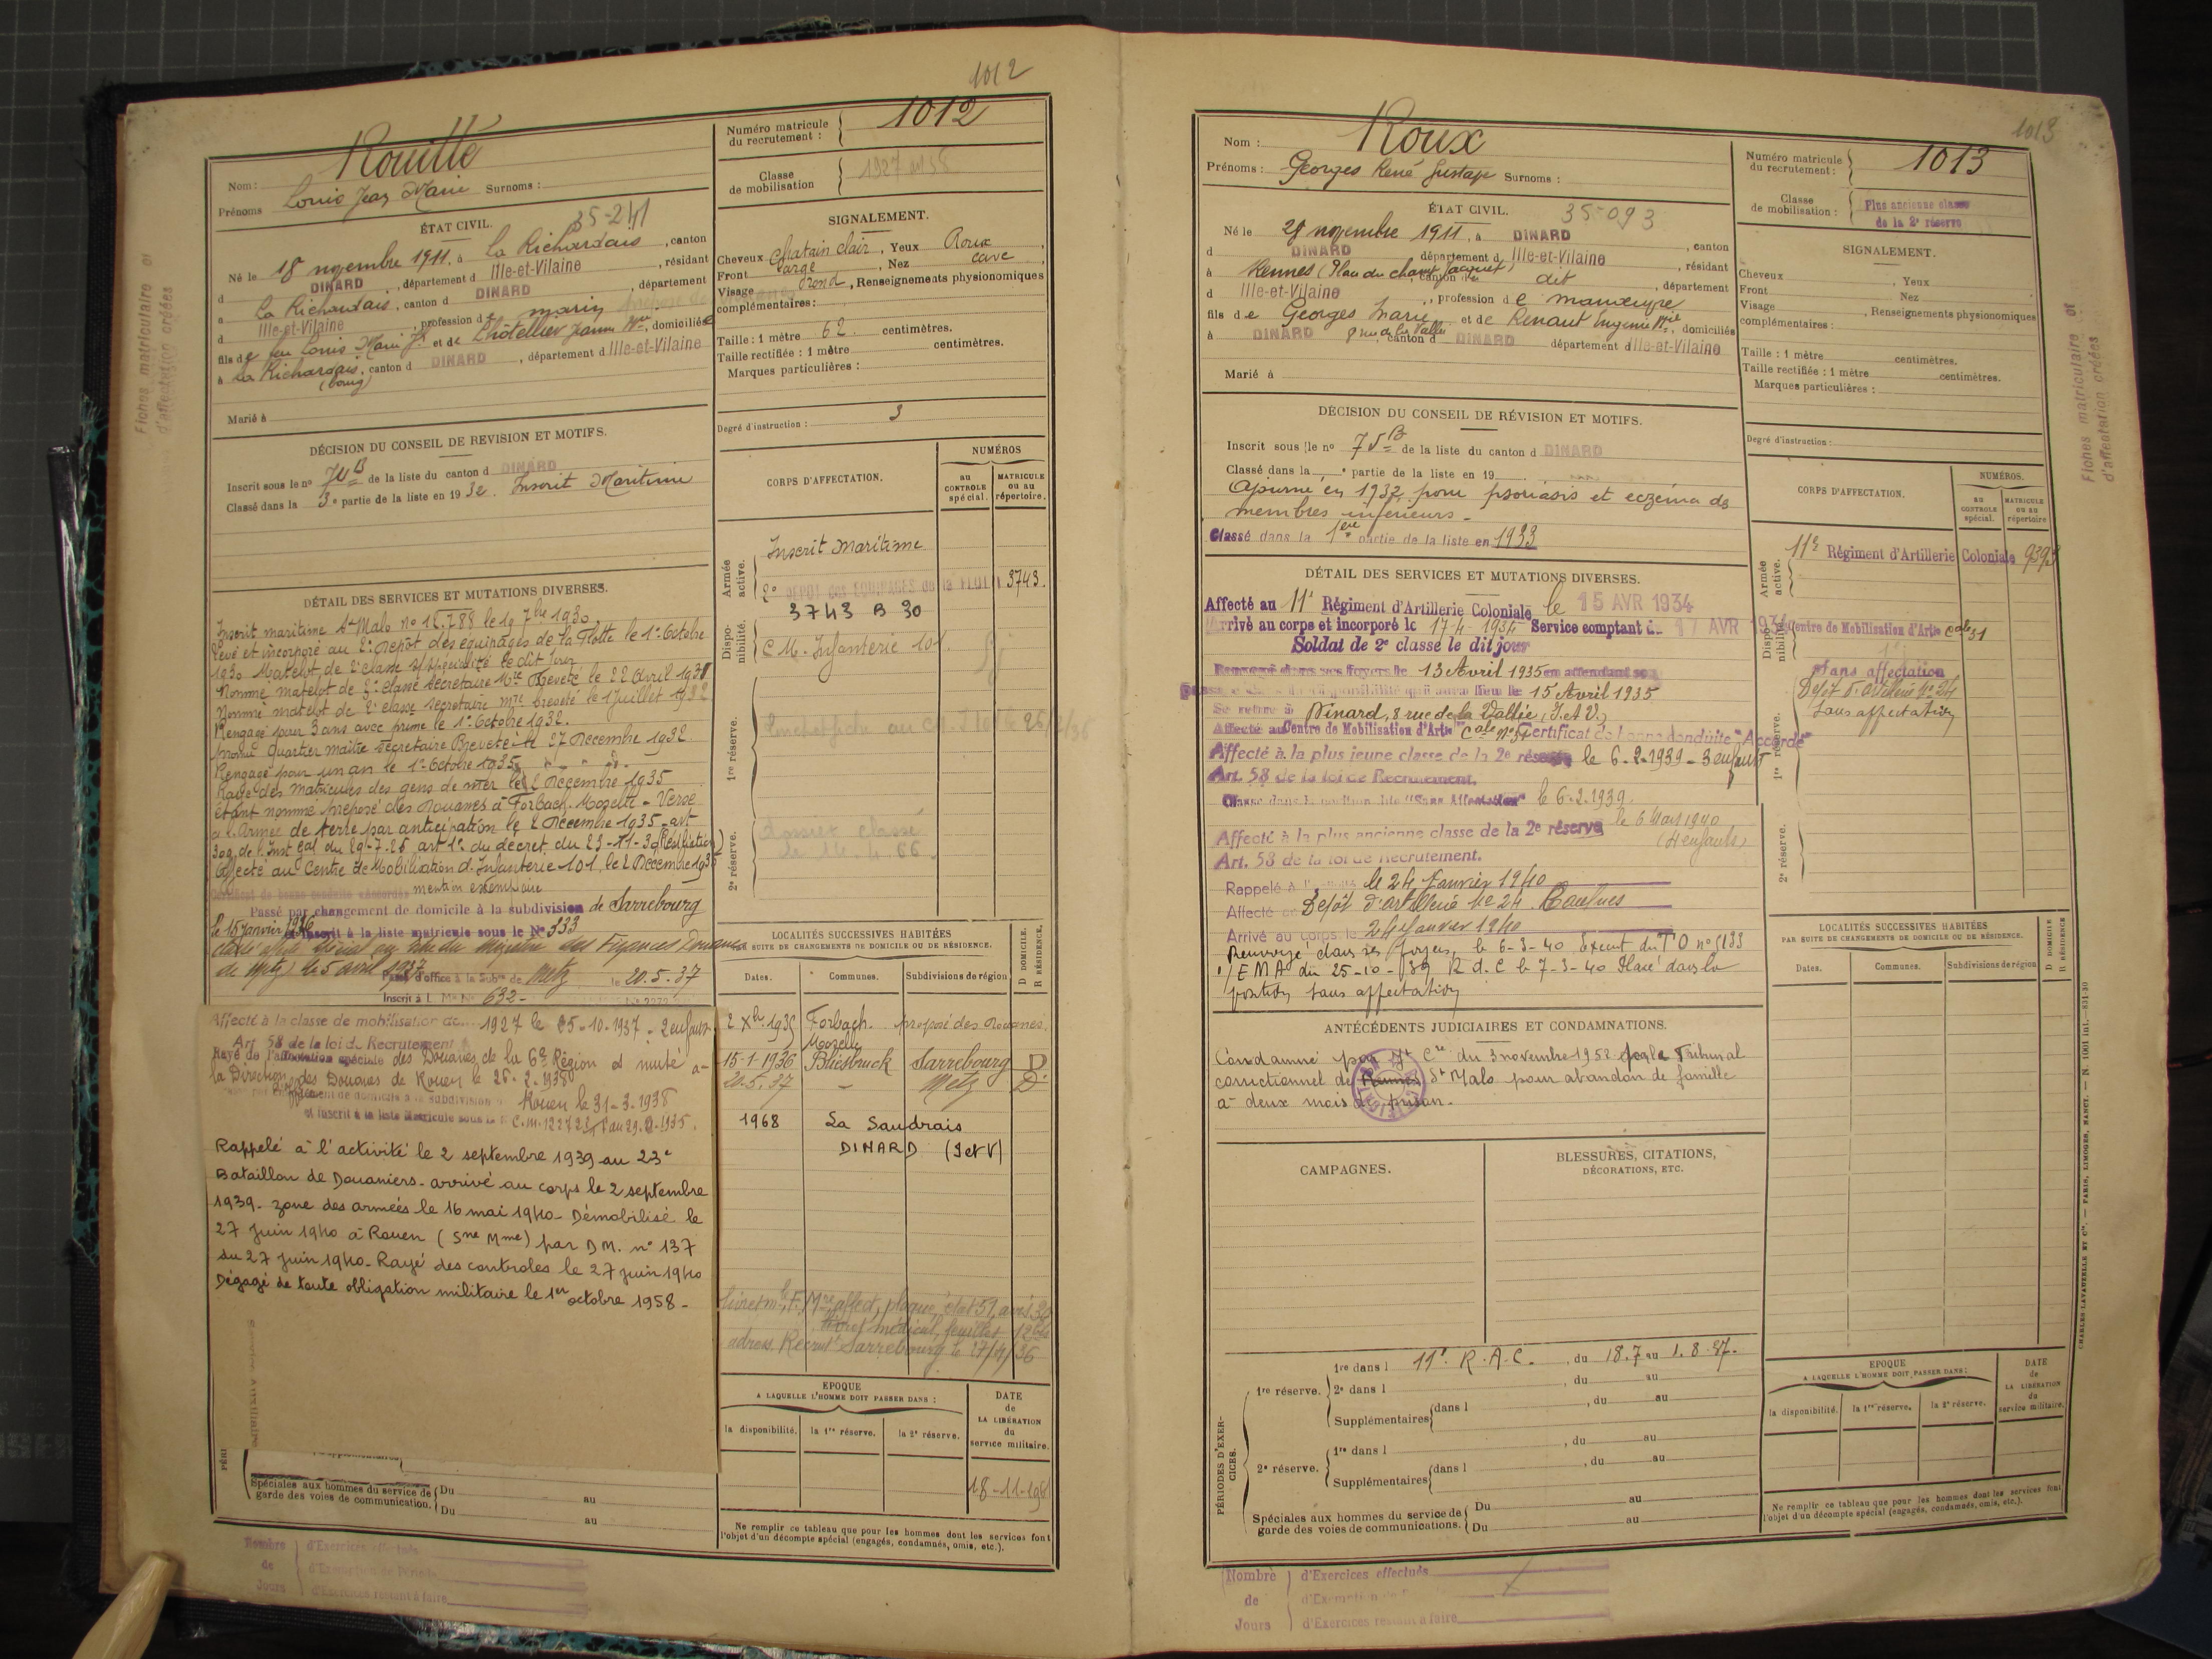 1012
Fiches matriculaire et
d'affectation créées
Nom : Rouillé
Prénoms Louis Jean Marie Surnoms :
ÉTAT CIVIL. 35-241
Né le 18 novembre 1911, à La Richardais, canton
d DINARD, département d Ille-et-Vilaine, résidant
à La Richardais, canton d DINARD, département
d Ille-et-Vilaine, profession de marin
fils de feu Louis Marie Jh et de Lhôtellier Jeanne Mie, domiciliée
à La Richardais, canton d DINARD, département d Ille-et-Vilaine
(bourg)
Marié à
DÉCISION DU CONSEIL DE REVISION ET MOTIFS.
Inscrit sous le no 70 B de la liste du canton d DINARD
Classé dans la 3e partie de la liste en 1932. Inscrit Maritime
DÉTAIL DES SERVICES ET MUTATIONS DIVERSES.
Inscrit maritime St Malo no 11.788 le 19 7bre 1930.
Levé et incorporé au 2e Dépôt des équipages de la Flotte le 1er Octobre
1930 Matelot de 2e classe s/spécialité le dit jour
Nommé matelot de 3e classe secrétaire Mre Breveté le 22 Avril 1931
Nommé matelot de 2e classe secrétaire mre breveté le 1 Juillet 1932
Rengagé pour 3 ans avec prime le 1er Octobre 1932.
Promu Quartier maître secrétaire Breveté le 27 Décembre 1932
Rengagé pour un an le 1er Octobre 1935
Rayé des matricules des gens de mer le 2 Décembre 1935
étant nommé préposé des Douanes à Forbach. Moselle - Versé
à l'Armée de terre par anticipation le 2 Décembre 1935 - art
309 de l'Inst Gal du 29-7-25 art 1er du décret du 23-11-30 (Rectificatif)
Affecté au Centre de Mobilisation d'Infanterie 101, le 2 Décembre 1935
Certificat de bonne conduite "Accordé" mention exemplaire
Passé par changement de domicile à la subdivision de Sarrebourg
le 15 janvier 1936 et inscrit à la liste matricule sous le No 333
Classé affecté spécial au titre du Ministère des Finances Douanes
de Metz) le 5 avril 1937
Passé d'office à la Subon de Metz le 20.5.37
Inscrit à L. Mle No 632-
Affecté à la classe de mobilisation de... 1927 le 25-10-1937 - 2 enfants
Art. 58 de la loi du Recrutement
Rayé de l'affectation spéciale des Douanes de la 6e Région et muté à
la Direction des Douanes de Rouen le 26-2-1938
Rouen le 31-3-1938
et inscrit à la liste Matricule sous le
Rappelé à l'activité le 2 septembre 1939 au 23e
Bataillon de Douaniers - arrivé au corps le 2 septembre
1939 - zone des armées le 16 mai 1940 - Démobilisé le
27 Juin 1940 à Rouen (Sne Mme) par DM. no 137
du 27 Juin 1940 - Rayé des controles le 27 juin 1940
Dégagé de toute obligation militaire le 1er octobre 1958 -
Service Auxiliaire
Spéciales aux hommes du service de garde des voies de communication. Du au
Du au
Nombre de Jours
d'Exercices effectués
d'Exemption de Période
d'Exercices restant à faire
Numéro matricule du recrutement : 1012
Classe de mobilisation 1927
SIGNALEMENT.
Cheveux Chatain clair, Yeux Roux
Front large, Nez cave
Visage rond, Renseignements physionomiques
complémentaires :
Taille : 1 mètre 62 centimètres.
Taille rectifiée : 1 mètre centimètres.
Marques particulières :
Degré d'instruction : 3
CORPS D'AFFECTATION.
NUMÉROS
au CONTROLE spécial.
MATRICULE ou au répertoire.
Armée active.
Inscrit Maritime
2e DÉPOT des EQUIPAGES de la FLOTTE 3743.
3743 B 30
Disponibilité.
C M. Infanterie 101
1re réserve.
2e réserve.
Dossier classé
LOCALITÉS SUCCESSIVES HABITÉES
PAR SUITE DE CHANGEMENTS DE DOMICILE OU DE RÉSIDENCE.
Dates. Communes. Subdivisions de région D DOMICILE. R RÉSIDENCE.
2 Xbre 1935 Forbach. préposé des Douanes.
Moselle
15-1-1936 Bliesbruck Sarrebourg D
20.5.37 - Metz D
1968 La Saudrais
DINARD (I et V)
adres. Recrut Sarrebourg le
EPOQUE
A LAQUELLE L'HOMME DOIT PASSER DANS :
la disponibilité. la 1re réserve. la 2e réserve.
DATE de LA LIBÉRATION du service militaire.
Ne remplir ce tableau que pour les hommes dont les services font
l'objet d'un décompte spécial (engagés, condamnés, omis, etc.).
1013
Nom : Roux
Prénoms : Georges René Gustave Surnoms :
ÉTAT CIVIL. 35-093
Né le 28 novembre 1911, à DINARD, canton
d DINARD département d Ille-et-Vilaine, résidant
à Rennes (Place du champ Jacquet) canton du dit, département
d Ille-et-Vilaine, profession de manœuvre
fils de Georges Marie et de Renaut Eugénie Mie, domiciliés
à DINARD 8 rue de la Vallée canton d DINARD département d Ille-et-Vilaine
Marié à
DÉCISION DU CONSEIL DE RÉVISION ET MOTIFS.
Inscrit sous le no 75 B de la liste du canton d DINARD
Classé dans la e partie de la liste en 19
Ajourné en 1932 pour psoriasis et eczéma des
membres inférieurs -
Classé dans la 1ère partie de la liste en 1933
DÉTAIL DES SERVICES ET MUTATIONS DIVERSES.
Affecté au 11e Régiment d'Artillerie Coloniale le 15 AVR 1934
Arrivé au corps et incorporé le 17-4-1934 Service comptant du 17 AVR 1934
Soldat de 2e classe le dit jour
Renvoyé dans ses foyers le 13 Avril 1935 en attendant son
passage dans la disponibilité qui aura lieu le 15 Avril 1935
Se retire à Dinard, 8 rue de la Vallée (I. et V.)
Affecté au Centre de Mobilisation d'Artie Cale No 51 Certificat de bonne conduite "Accordé"
Affecté à la plus jeune classe de la 2e réserve le 6-2-1939 - 3 enfants
Art. 58 de la loi de Recrutement.
Classé dans la position dite "Sans Affectation" le 6-2-1939.
Affecté à la plus ancienne classe de la 2e réserve le 6 Mars 1940
(4 enfants)
Art. 58 de la loi de Recrutement.
Rappelé à l'activité le 24 Janvier 1940
Affecté au Dépôt d'artillerie No 24 Caulnes
Arrivé au corps le 24 Janvier 1940
Renvoyé dans ses foyers le 6-3-40 Execut. du T O no 5133
1/EMA du 25-10-39 R.d.C le 7-3-40 Placé dans la
position sans affectation
ANTÉCÉDENTS JUDICIAIRES ET CONDAMNATIONS.
Condamné par Jt Cre du 3 novembre 1952 par le Tribunal
correctionnel de Rennes St Malo pour abandon de famille
à deux mois de prison.
CAMPAGNES.
BLESSURES, CITATIONS, DÉCORATIONS, ETC.
PÉRIODES D'EXERCICES.
1re réserve.
1re dans l 11e R.A.C., du 18.7 au 1.8.37.
2e dans l, du au
Supplémentaires dans l, du au
2e réserve.
1re dans l, du au
Supplémentaires dans l, du au
Spéciales aux hommes du service de garde des voies de communications. Du au
Du au
Nombre de Jours
d'Exercices effectués
d'Exemption
d'Exercices restant à faire
Numéro matricule du recrutement : 1013
Classe de mobilisation : Plus ancienne classe
de la 2e réserve
SIGNALEMENT.
Cheveux, Yeux
Front Nez
Visage, Renseignements physionomiques
complémentaires :
Taille : 1 mètre centimètres.
Taille rectifiée : 1 mètre centimètres.
Marques particulières :
Degré d'instruction :
CORPS D'AFFECTATION.
NUMÉROS.
au CONTROLE spécial.
MATRICULE ou au répertoire
Armée active.
11e Régiment d'Artillerie Coloniale
Disponibilité.
Centre de Mobilisation d'Artie Cale 51
Sans affectation
Dépôt d'artillerie No 24
Sans affectation
1re réserve.
2e réserve.
LOCALITÉS SUCCESSIVES HABITÉES
PAR SUITE DE CHANGEMENTS DE DOMICILE OU DE RÉSIDENCE.
Dates. Communes. Subdivisions de région D DOMICILE R RÉSIDENCE
EPOQUE
A LAQUELLE L'HOMME DOIT PASSER DANS :
la disponibilité. la 1re réserve. la 2e réserve.
DATE de LA LIBÉRATION du service militaire.
Ne remplir ce tableau que pour les hommes dont les services font
l'objet d'un décompte spécial (engagés, condamnés, omis, etc.).
Fiches matriculaire et
d'affectation créées
CHARLES-LAVAUZELLE ET Cie. — PARIS, LIMOGES, NANCY. — N. 1001 int.—831-30